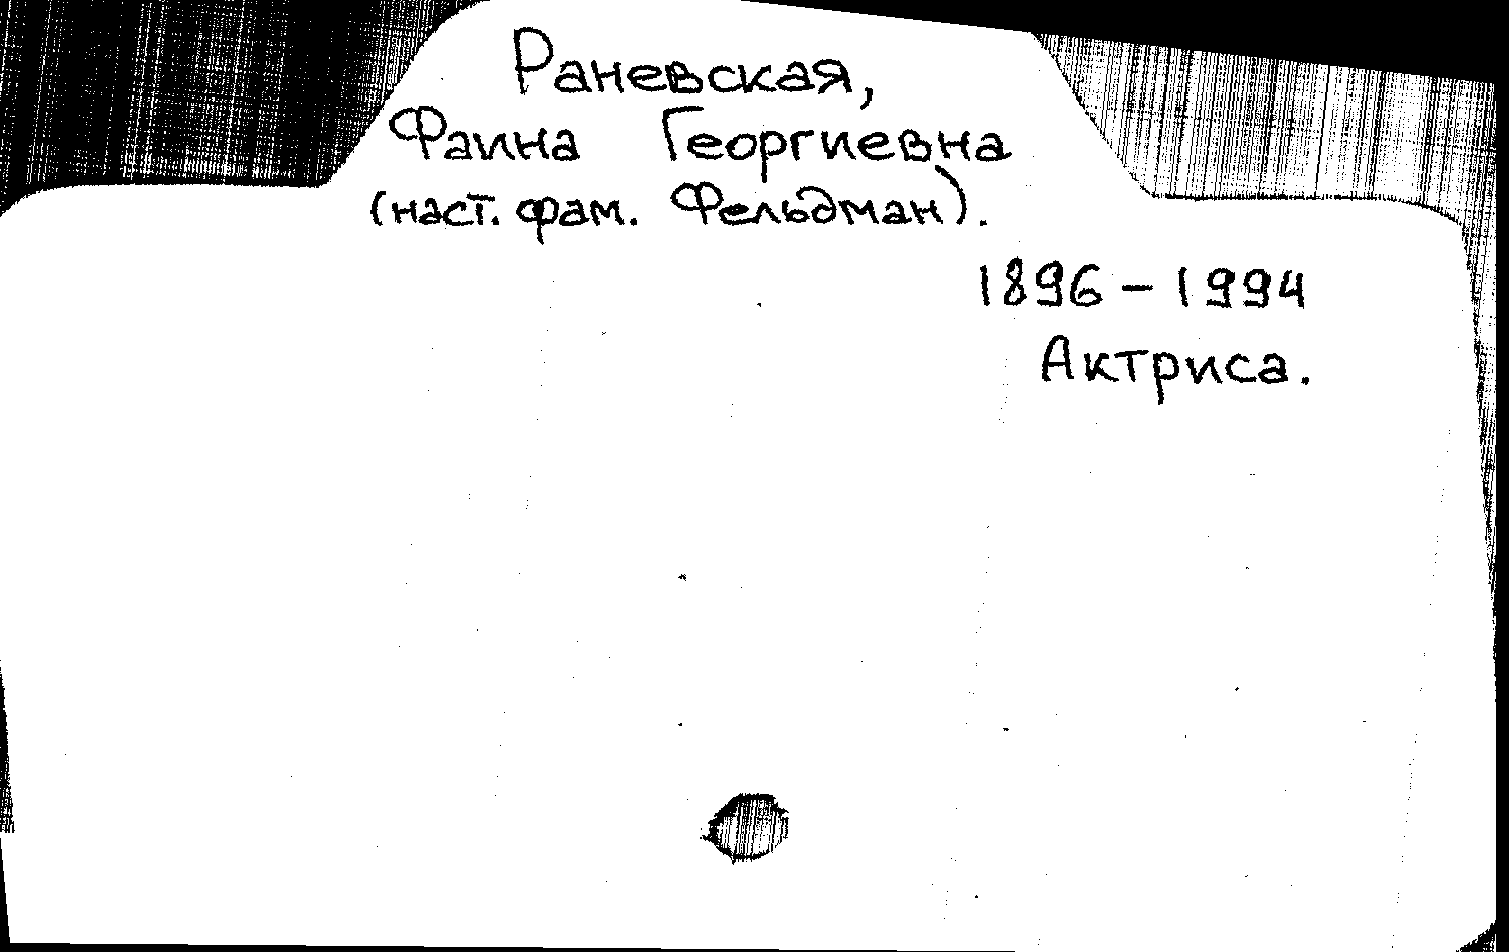 Раневская,
Фаина Георгиевна
(наст. фам. Фельдман).
1896 – 1994
Актриса.